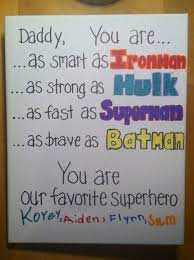 Daddy, You are...
...as smart as IRONMAN
as strong as Hulk
...as fast as SUPERMAN
...as brave as BATMAN
You are
our favorite superhero
Korey, Aiden, Flynn, Sam